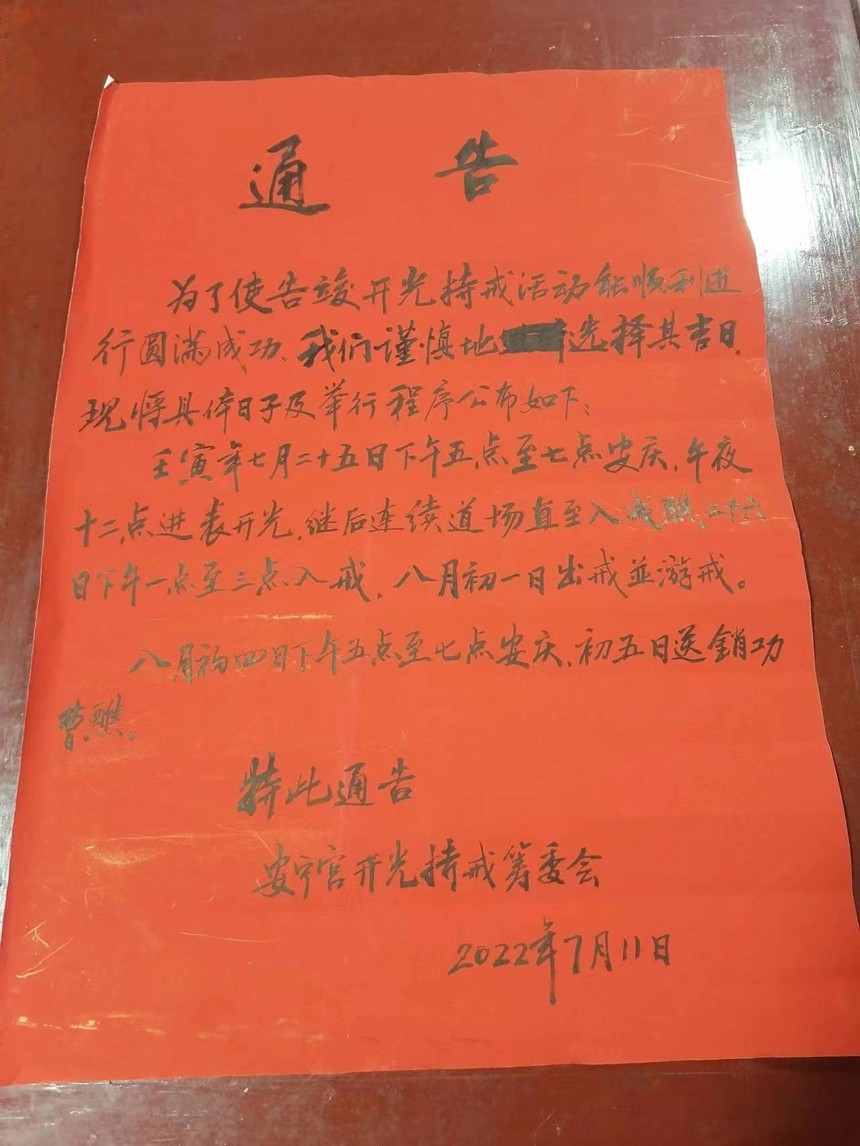 通 告
为了使告竣开光持戒活动能顺利进
行圆满成功、我们谨慎地选择其吉日，
现将具体日子及举行程序公布如下：
壬寅年七月二十五日下午五点至七点安庆，午夜
十二点进表开光，继后连续道场直至入戒醮，二十六
日下午一点至三点入戒，八月初一日出戒並游戒。
八月初四日下午五点至七点安庆，初五日送銷功
醮。
特此通告
安宁宫开光持戒筹委会
2022年7月11日